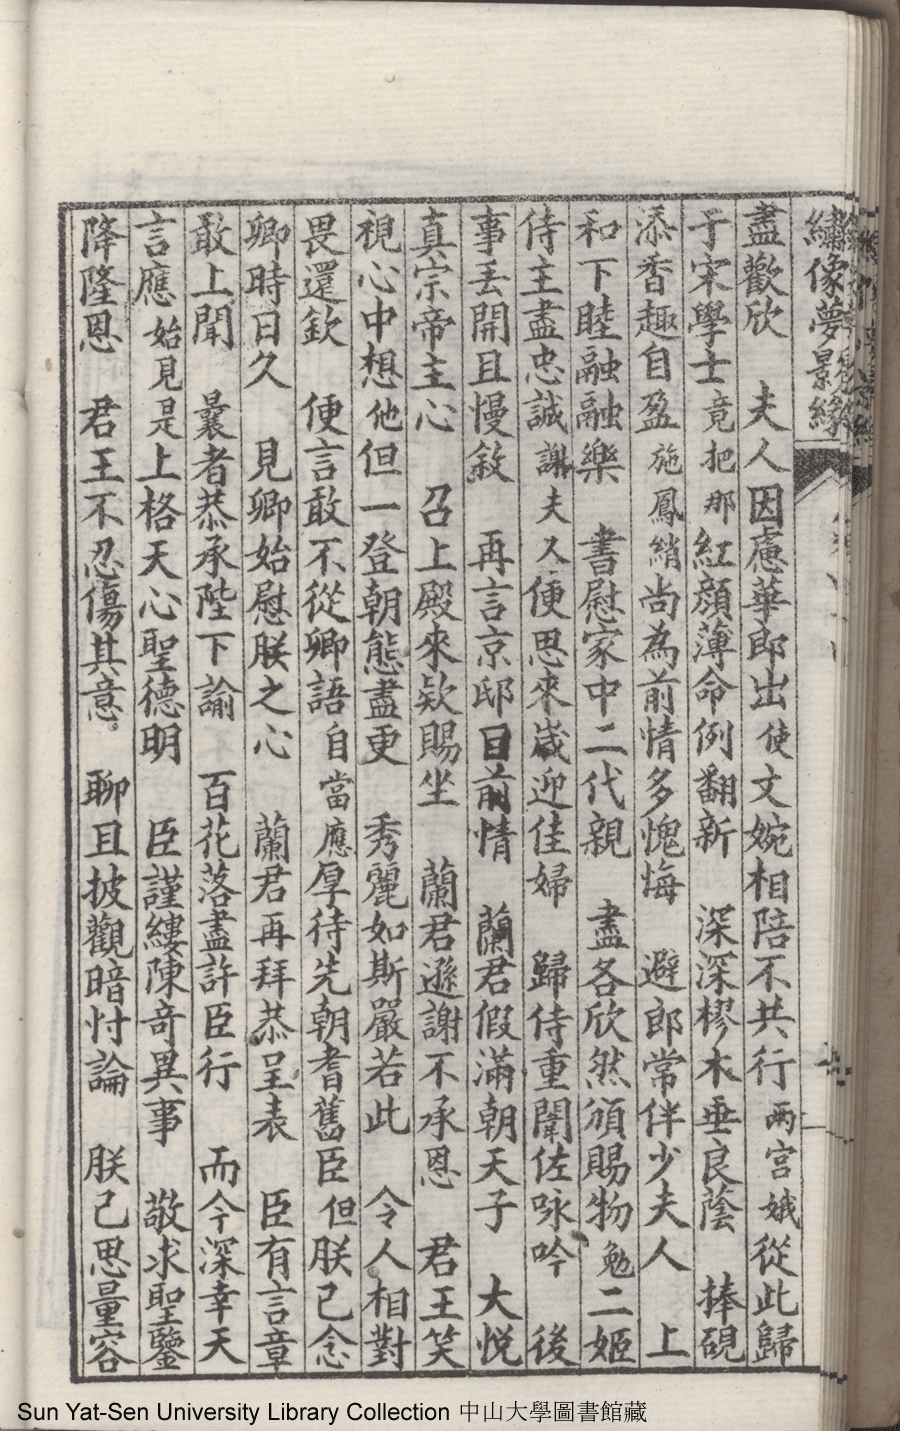 繡像夢景緣
盡歡欣 夫人因慮華郎出使文婉相陪不共行 兩宮娥從此歸
于宋學士竟把那紅顏薄命例翻新 深深樛木垂良蔭 捧硯
添香趣自盈施鳳綃尚為前情多愧悔 避郎常伴少夫人 上
和下睦融融樂 書慰家中二代親 盡各欣然頒賜物勉二姬
侍主盡忠誠謝夫人便思來歲迎佳婦 歸侍重闈佐咏吟 後
事丢開且慢敘 再言京邸目前情 蘭君假滿朝天子 大悅
真宗帝主心 召上殿來欵賜坐 蘭君遜謝不承恩 君王笑
視心中想他但一登朝態盡更 秀麗如斯嚴若此 令人相對
畏還欽 便言敢不從卿語自當應厚待先朝耆舊臣但朕已念
卿時日久 見卿始慰朕之心 蘭君再拜恭呈表 臣有言章
敢上聞 曩者恭承陛下諭 百花落盡許臣行 而今深幸天
言應始見是上格天心聖德明 臣謹縷陳奇異事 敬求聖鑒
降隆恩 君王不忍傷其意 聊且披觀暗忖論 朕己思量容
Sun Yat-Sen University Library Collection 中山大學圖書館藏